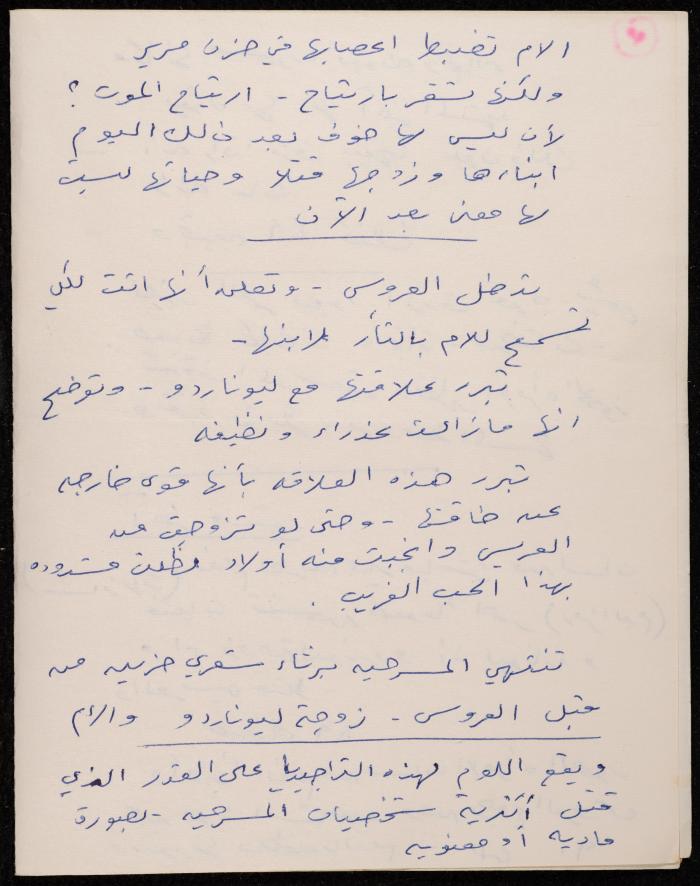 الام تضبط اعصابها في حزن مرير
ولكنها تشعر بارتياح - ارتياح الموت ؟
لأن ليس لها خوف بعد ذلك اليوم
ابناءها وزوجها قتلا وحياتها ليست
لها معنى بعد الآن
تدخل العروس - وتعلن أنها اتت لكي
تسمح للام بالثأر لابنها -
تبرر علاقتها مع ليوناردو - وتوضح
انها مازالت عذراء ونظيفه
تبرر هذه العلاقه بأنها قوى خارجه
عن طاقتها - وحتى لو تزوجت من
العريس وانجبت منه أولاد لظلت مشدوده
بهذا الحب الغريب .
تنتهي المسرحيه برثاء شعري حزين من
قبل العروس - زوجة ليوناردو والأم
ويقع اللوم لهذه التراجيديا على القدر الذي
قتل أكثرية شخصيات المسرحيه - بصورة
ماديه أو معنويه